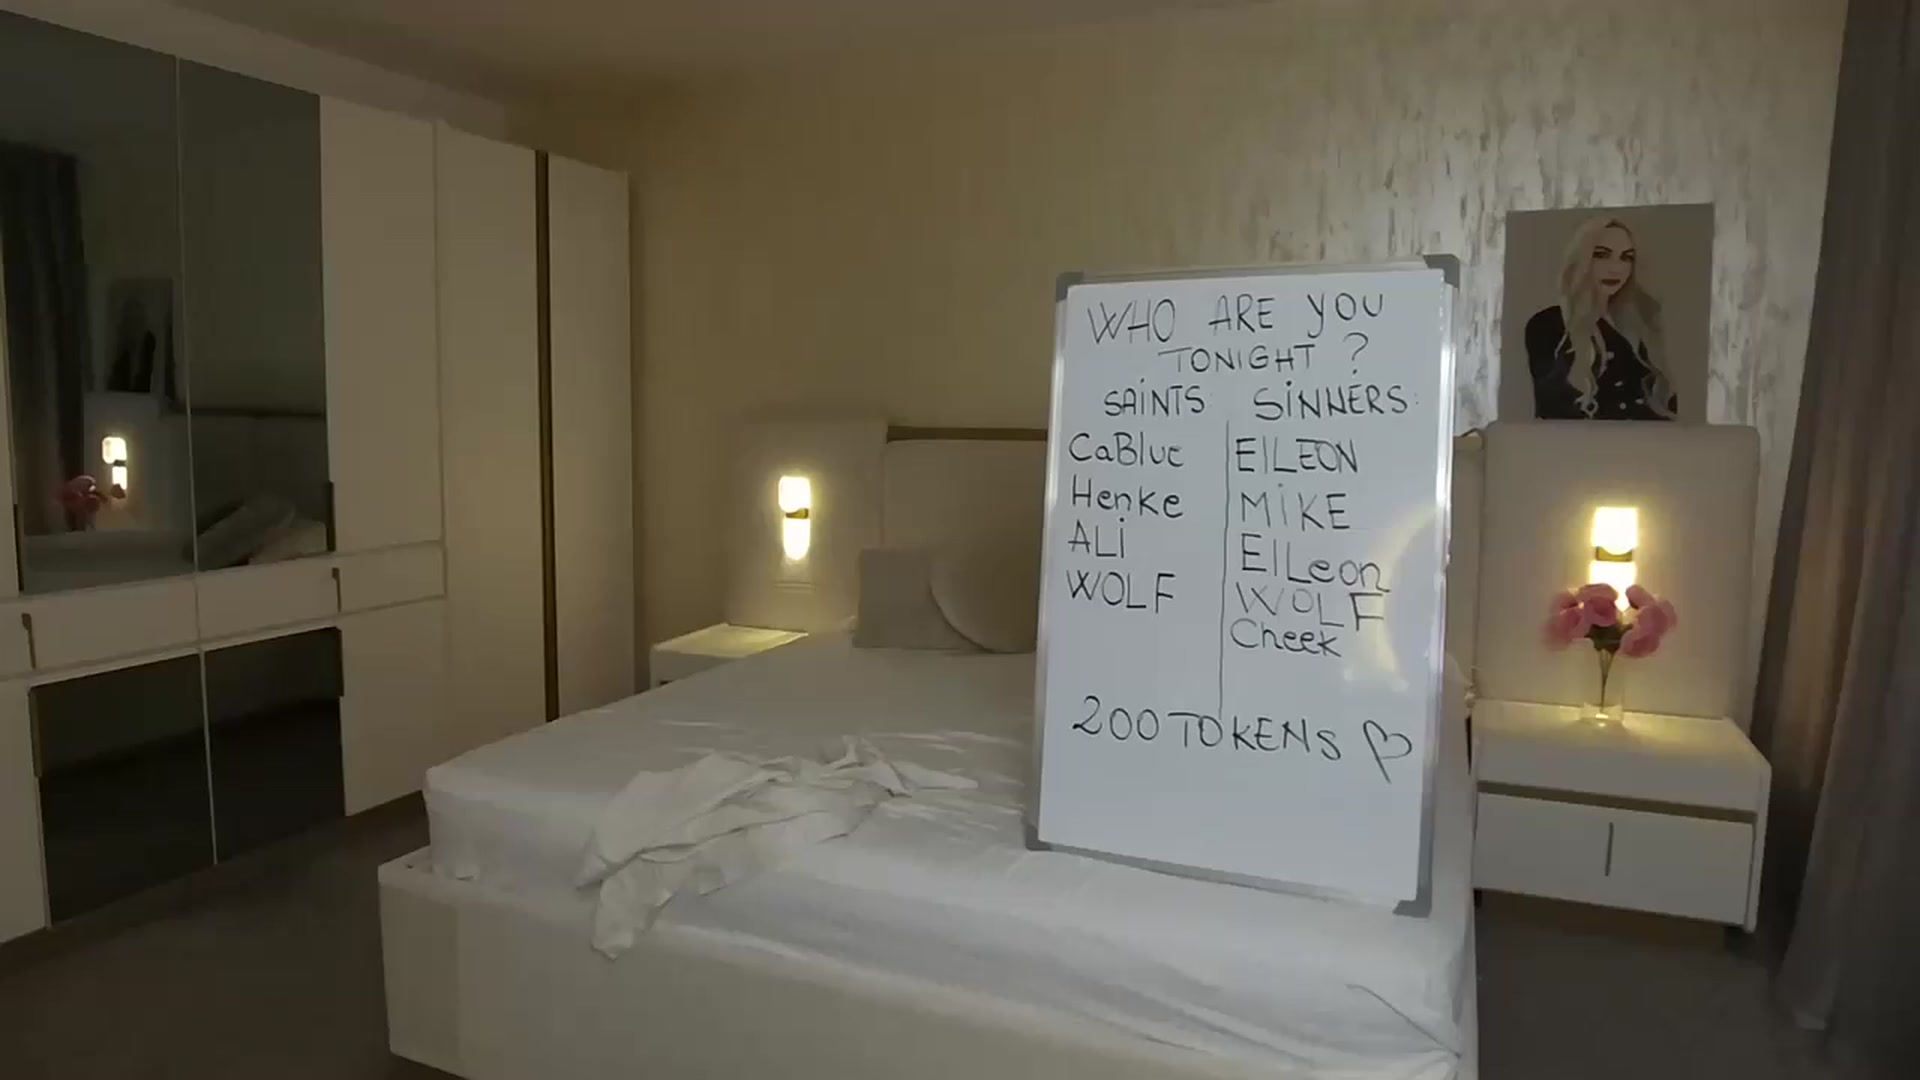 WHO ARE YOU
TONIGHT ?
SAINTS: SINNERS:
CaBlue EILEON
Henke MIKE
ALI EILeon
WOLF WOLF
Cheek
200 TOKENS ♡